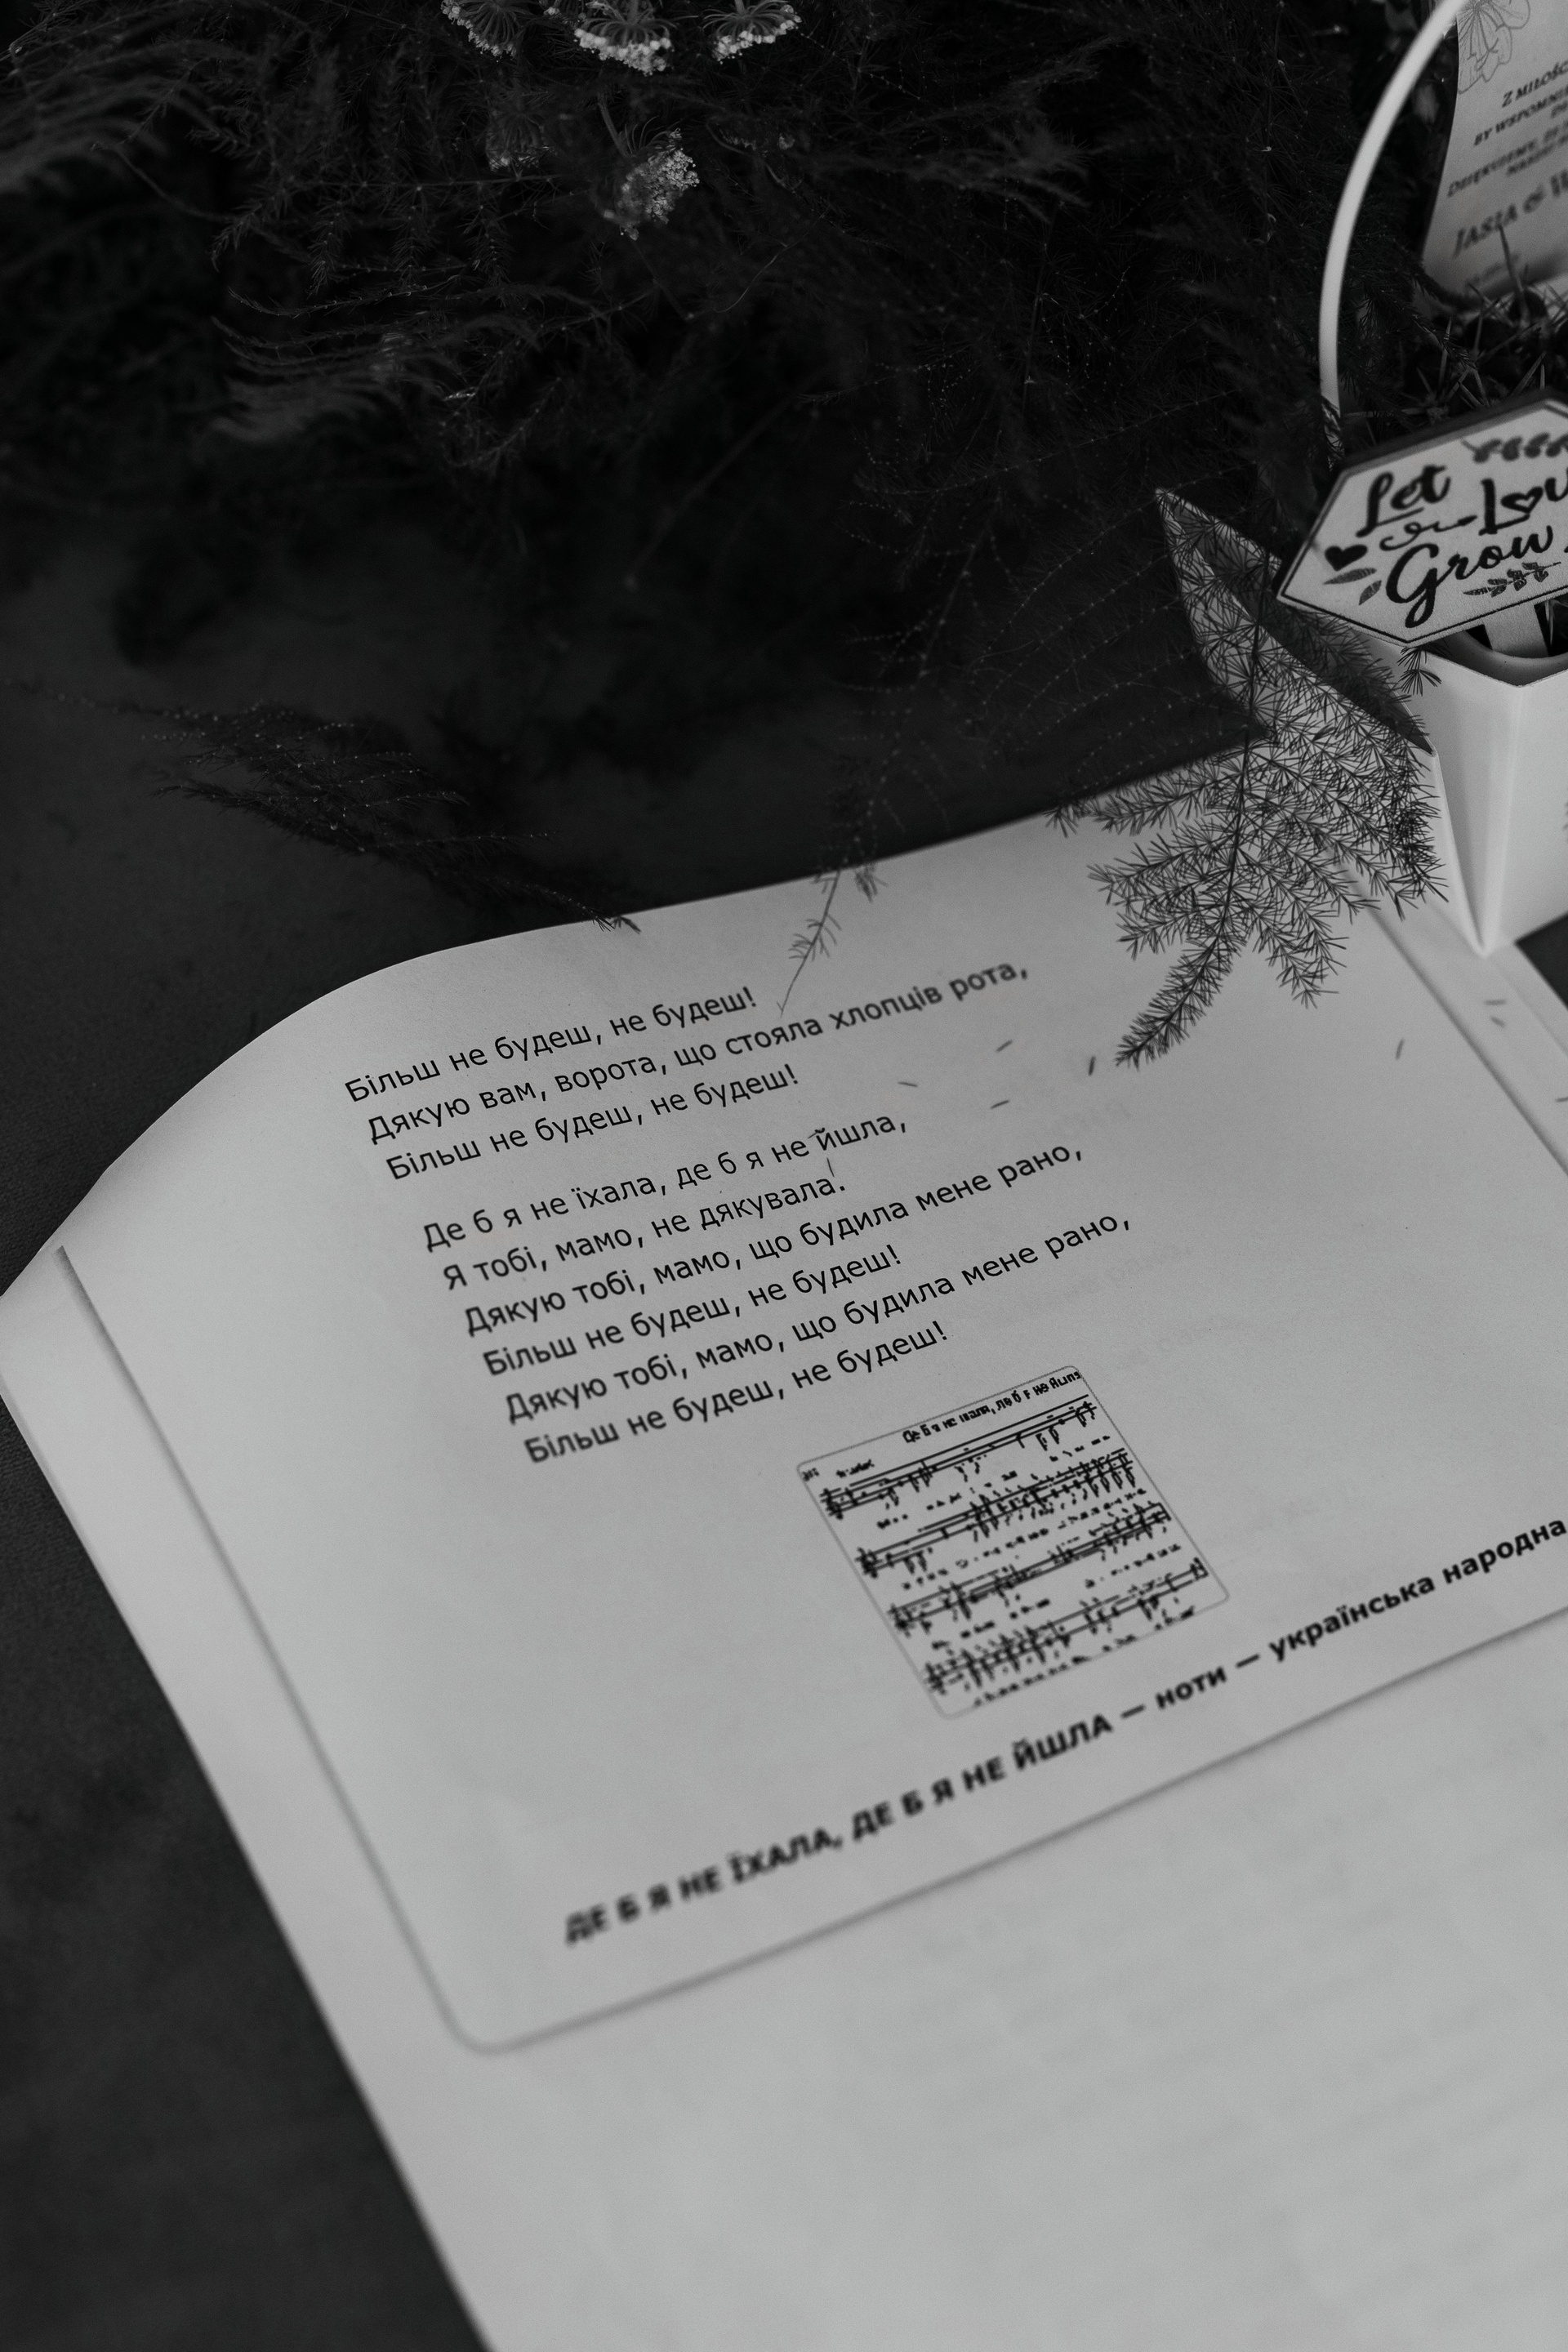 Z MIŁOŚC
BY WSPOMNIE
DZIĘKUJEMY, ŻE
JASIA &
Let
Love
Grow
Більш не будеш, не будеш!
Дякую вам, ворота, що стояла хлопців рота,
Більш не будеш, не будеш!
Де б я не їхала, де б я не йшла,
Я тобі, мамо, не дякувала.
Дякую тобі, мамо, що будила мене рано,
Більш не будеш, не будеш!
Дякую тобі, мамо, що будила мене рано,
Більш не будеш, не будеш!
Де б я не їхала, де б я не йшла
ДЕ Б Я НЕ ЇХАЛА, ДЕ Б Я НЕ ЙШЛА — ноти — українська народна